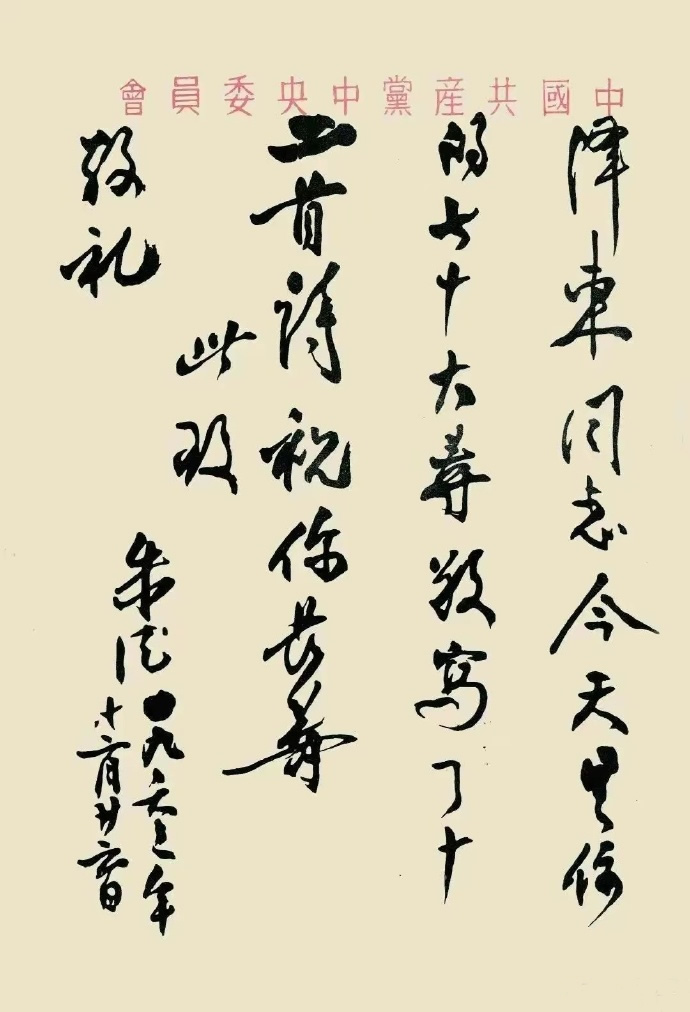 中國共産黨中央委員會
澤東同志今天是你
的七十大壽敬寫了十
二首詩祝你長壽
此致
敬礼
朱德
一九六三年
十二月廿六日